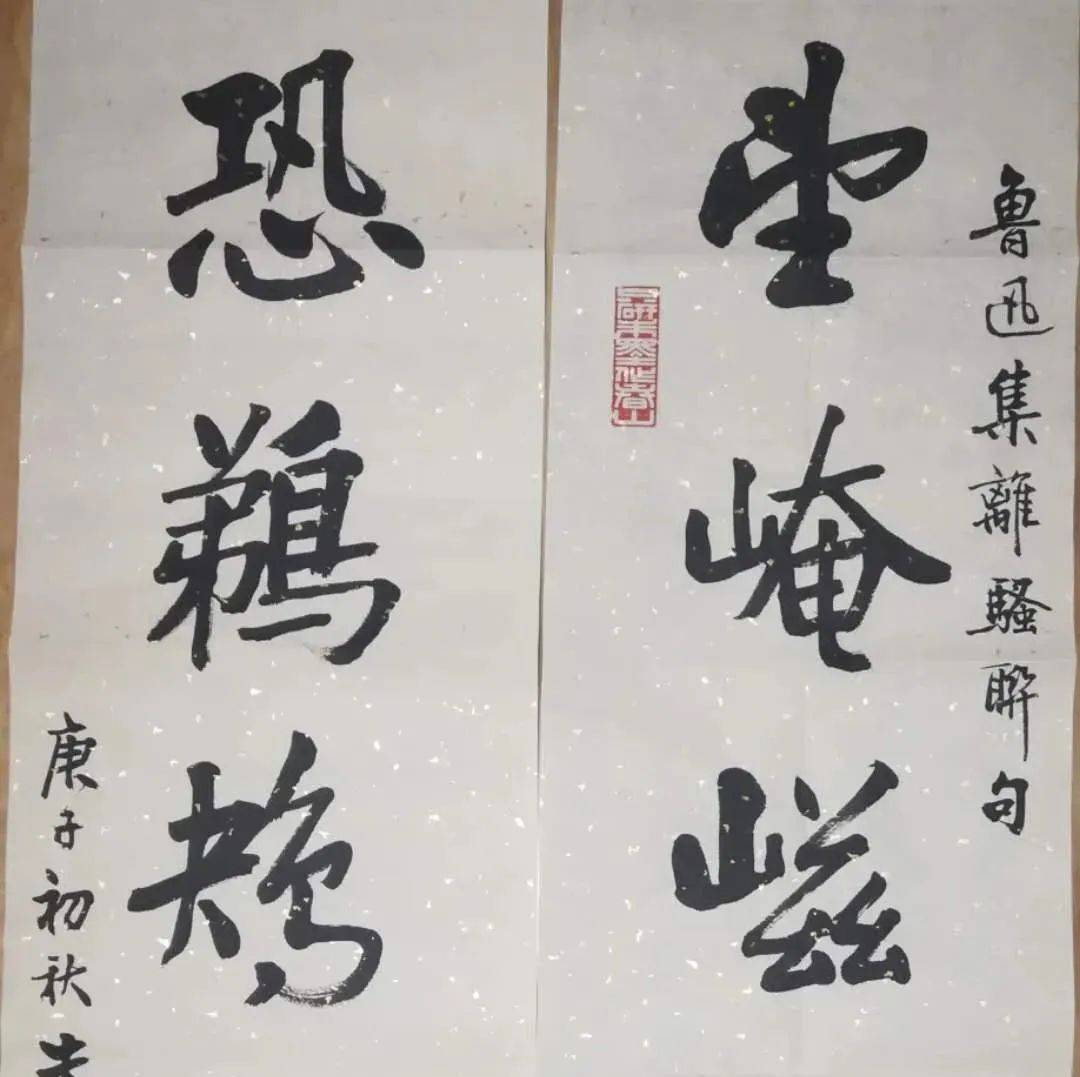 魯迅集離騷聯句
望崦嵫
恐鵜鴂
庚子初秋